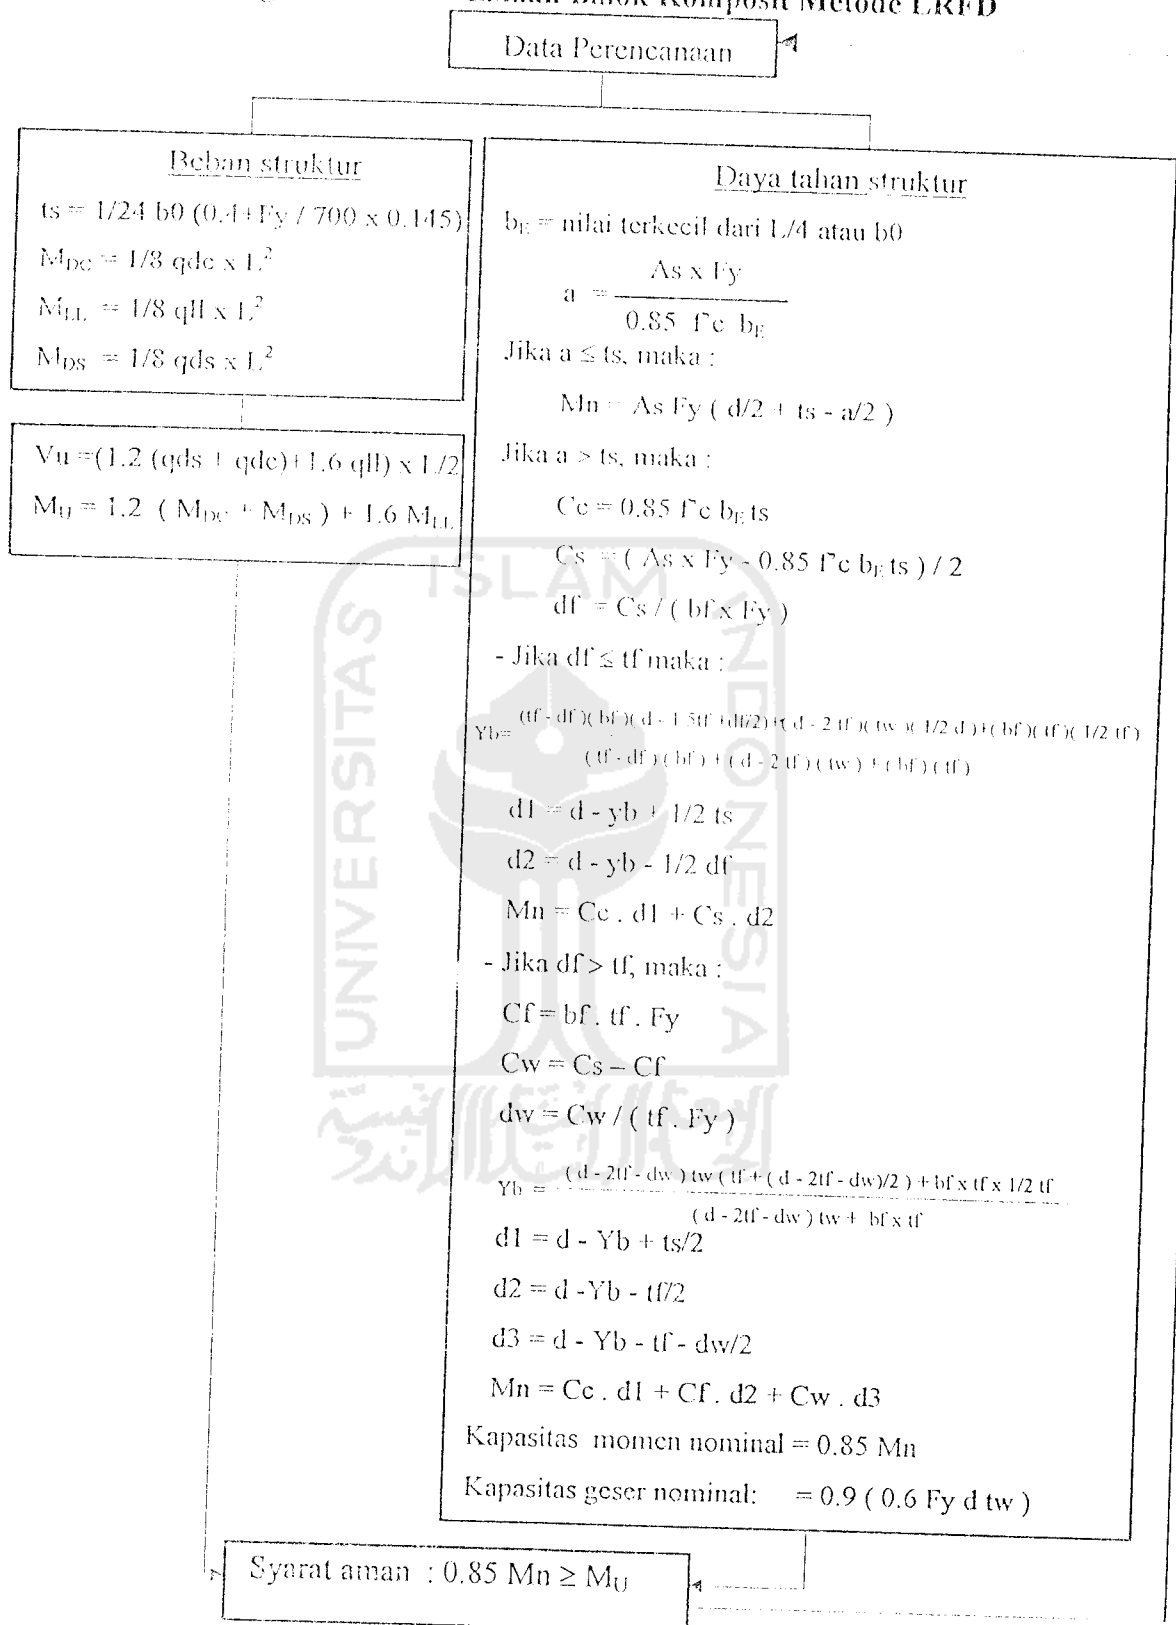 Balok Komposit Metode LRFD
Data Perencanaan
Beban struktur
ts = 1/24 b0 (0.4+Fy / 700 x 0.145)
M_DC = 1/8 qdc x L²
M_LL = 1/8 qll x L²
M_DS = 1/8 qds x L²
Vu =(1.2 (qds + qdc)+1.6 qll) x L/2
M_U = 1.2 ( M_DC + M_DS ) + 1.6 M_LL
Daya tahan struktur
b_E = nilai terkecil dari L/4 atau b0
As x Fy
a =
0.85 f'c b_E
Jika a ≤ ts, maka :
Mn = As Fy ( d/2 + ts - a/2 )
Jika a > ts, maka :
Cc = 0.85 f'c b_E ts
Cs = ( As x Fy - 0.85 f'c b_E ts ) / 2
df = Cs / ( bf x Fy )
- Jika df ≤ tf maka :
(tf - df )( bf )( d - 1.5tf +df/2)+( d - 2 tf )( tw )( 1/2 d )+( bf )( tf )( 1/2 tf )
Yb=
( tf - df ) ( bf ) + ( d - 2 tf ) ( tw ) + ( bf ) ( tf )
d1 = d - yb + 1/2 ts
d2 = d - yb - 1/2 df
Mn = Cc . d1 + Cs . d2
- Jika df > tf, maka :
Cf = bf . tf . Fy
Cw = Cs – Cf
dw = Cw / ( tf . Fy )
( d - 2tf - dw ) tw ( tf + ( d - 2tf - dw)/2 ) + bf x tf x 1/2 tf
Yb =
( d - 2tf - dw ) tw + bf x tf
d1 = d - Yb + ts/2
d2 = d -Yb - tf/2
d3 = d - Yb - tf - dw/2
Mn = Cc . d1 + Cf . d2 + Cw . d3
Kapasitas momen nominal = 0.85 Mn
Kapasitas geser nominal: = 0.9 ( 0.6 Fy d tw )
Syarat aman : 0.85 Mn ≥ M_U
ISLAM
UNIVERSITAS
INDONESIA